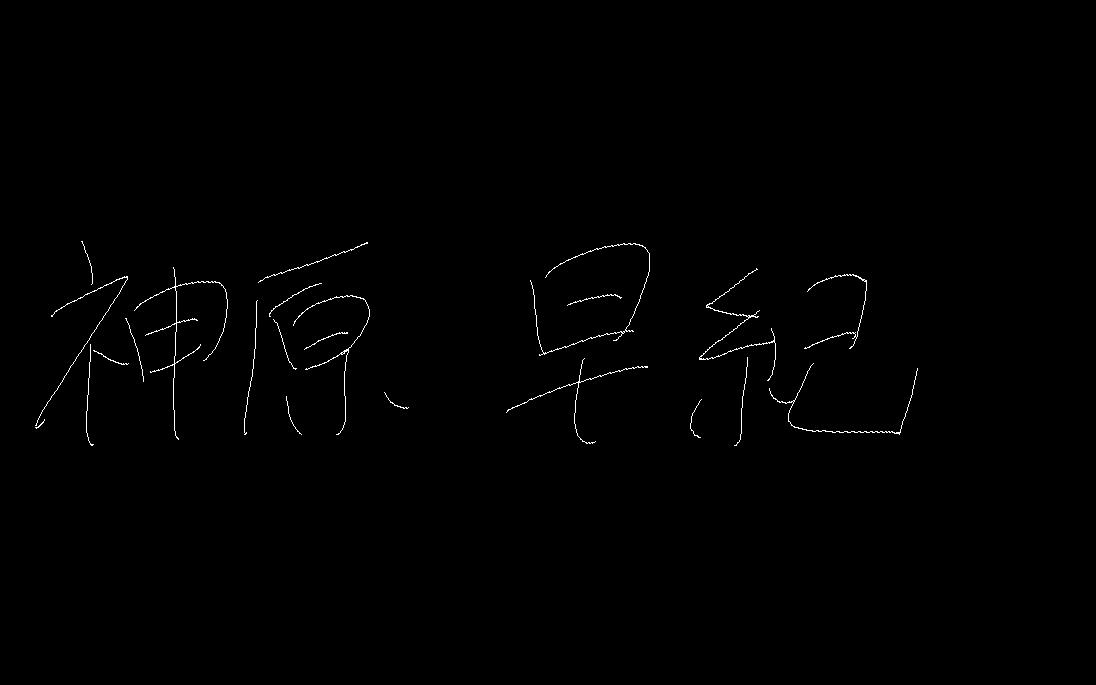 神原 早紀